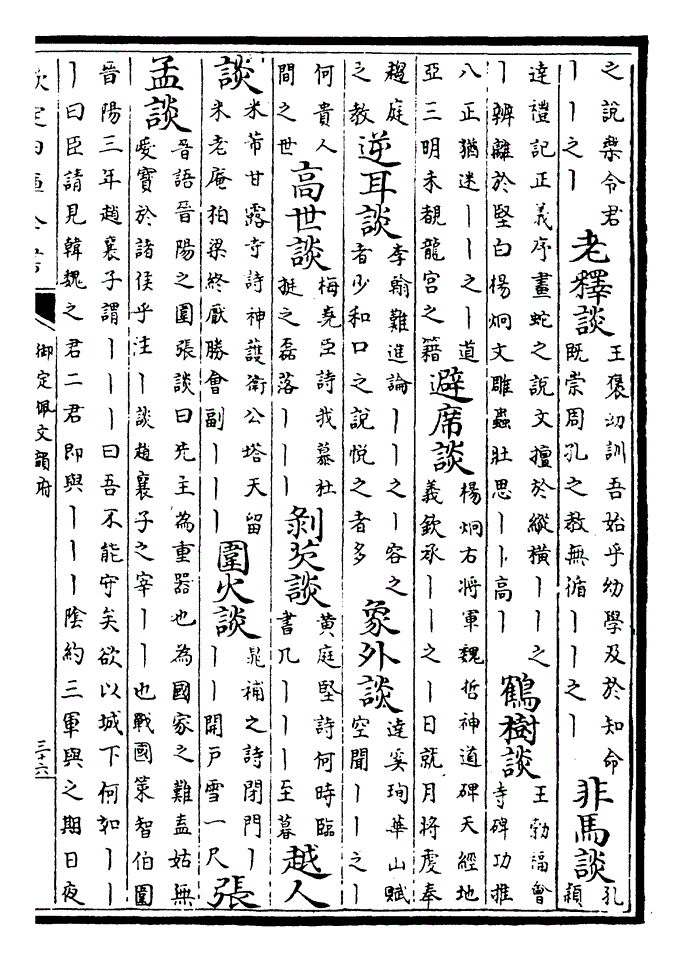 之說樂令君丨丨之丨老釋談王褒幼訓吾始乎幼學及於知命既崇周孔之教兼循丨丨之丨非馬談孔穎
達禮記正義序畫蛇之說文擅於縱橫丨丨之丨辨離於堅白楊炯文雕蟲壯思丨丨高丨鶴樹談王勃福會寺碑功推
八正猶迷丨丨之丨道亞三明未覩龍宫之籍避席談楊炯右將軍魏哲神道碑天經地義欽承丨丨之丨日就月將虔奉
趨庭之教逆耳談李翰難進論丨丨之丨容之者少和口之說悦之者多象外談達奚珣華山賦空聞丨丨之丨
何貴人間之世高世談梅堯臣詩我慕杜挺之磊落丨丨丨剝芡談黄庭堅詩何時臨書几丨丨丨至暮越人
談米芾甘露寺詩神護衛公塔天留米老庵柏梁終厭勝會副丨丨丨圍火談晁補之詩閉門丨丨丨開戸雪一尺張
孟談晉語晉陽之圍張談曰先主為重器也為國家之難盍姑無愛寳於諸侯乎注丨談趙襄子之宰丨丨也戰國策智伯圍
晉陽三年趙襄子謂丨丨丨曰吾不能守矣欲以城下何如丨丨丨曰臣請見韓魏之君二君即與丨丨丨隂約三軍與之期日夜
欽定四庫全書
御定佩文韻府
三十六